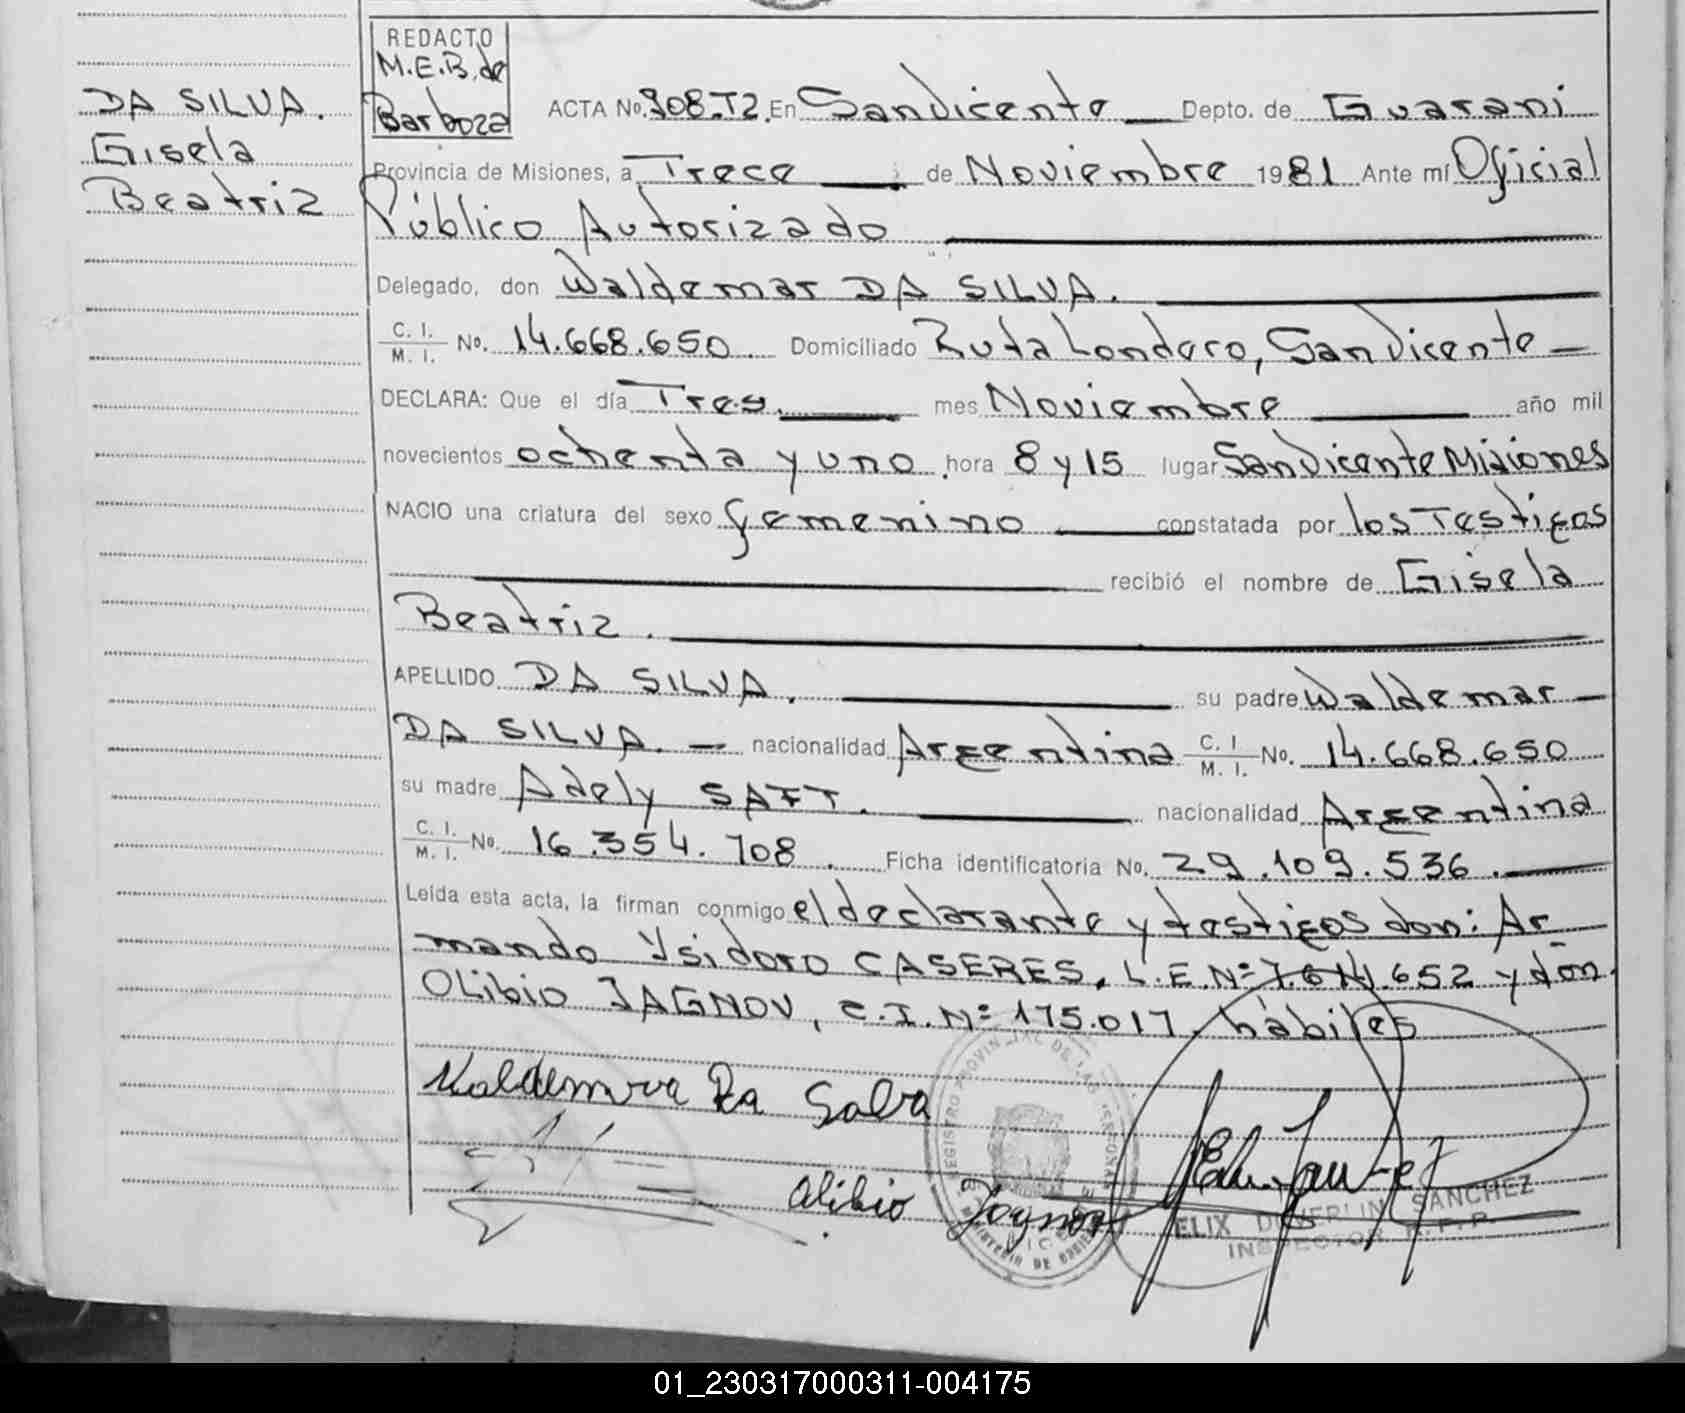 DA SILVA.
Gisela
Beatriz
REDACTO
M.E.B. de
Barboza
ACTA No. 308.T2. En San Vicente Depto. de Guaraní
Provincia de Misiones, a Trece de Noviembre 1981 Ante mí Oficial
Público Autorizado
Delegado, don Waldemar DA SILVA.
C. I. / M. I. No. 14.668.650 Domiciliado Ruta Londero, San Vicente
DECLARA: Que el día Tres. mes Noviembre año mil
novecientos ochenta y uno hora 8 y 15 lugar San Vicente Misiones
NACIO una criatura del sexo femenino constatada por los Testigos
recibió el nombre de Gisela
Beatriz.
APELLIDO DA SILVA. su padre Waldemar
DA SILVA. nacionalidad Argentina C. I. / M. I. No. 14.668.650
su madre Adely SAFT. nacionalidad Argentina
C. I. / M. I. No. 16.354.708. Ficha identificatoria No. 29.109.536.
Leída esta acta, la firman conmigo el declarante y testigos don: Ar-
mando Ysidoro CASERES, L.E.Nº 7.614.652 y don
OLibio JAGNOV, C.I.Nº 175.017. hábiles
Olibio Jagnov
REGISTRO PROVINCIAL DE LAS PERSONAS
MINISTERIO DE GOBIERNO
FELIX SANCHEZ
INSPECTOR R.P.P.
01_230317000311-004175